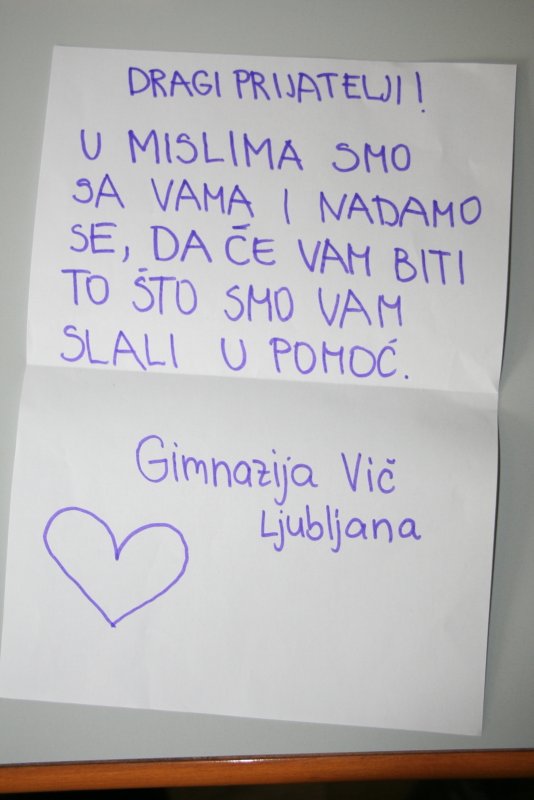 DRAGI PRIJATELJI!
U MISLIMA SMO
SA VAMA I NADAMO
SE, DA ČE VAM BITI
TO ŠTO SMO VAM
SLALI U POMOĆ.
Gimnazija Vič
Ljubljana